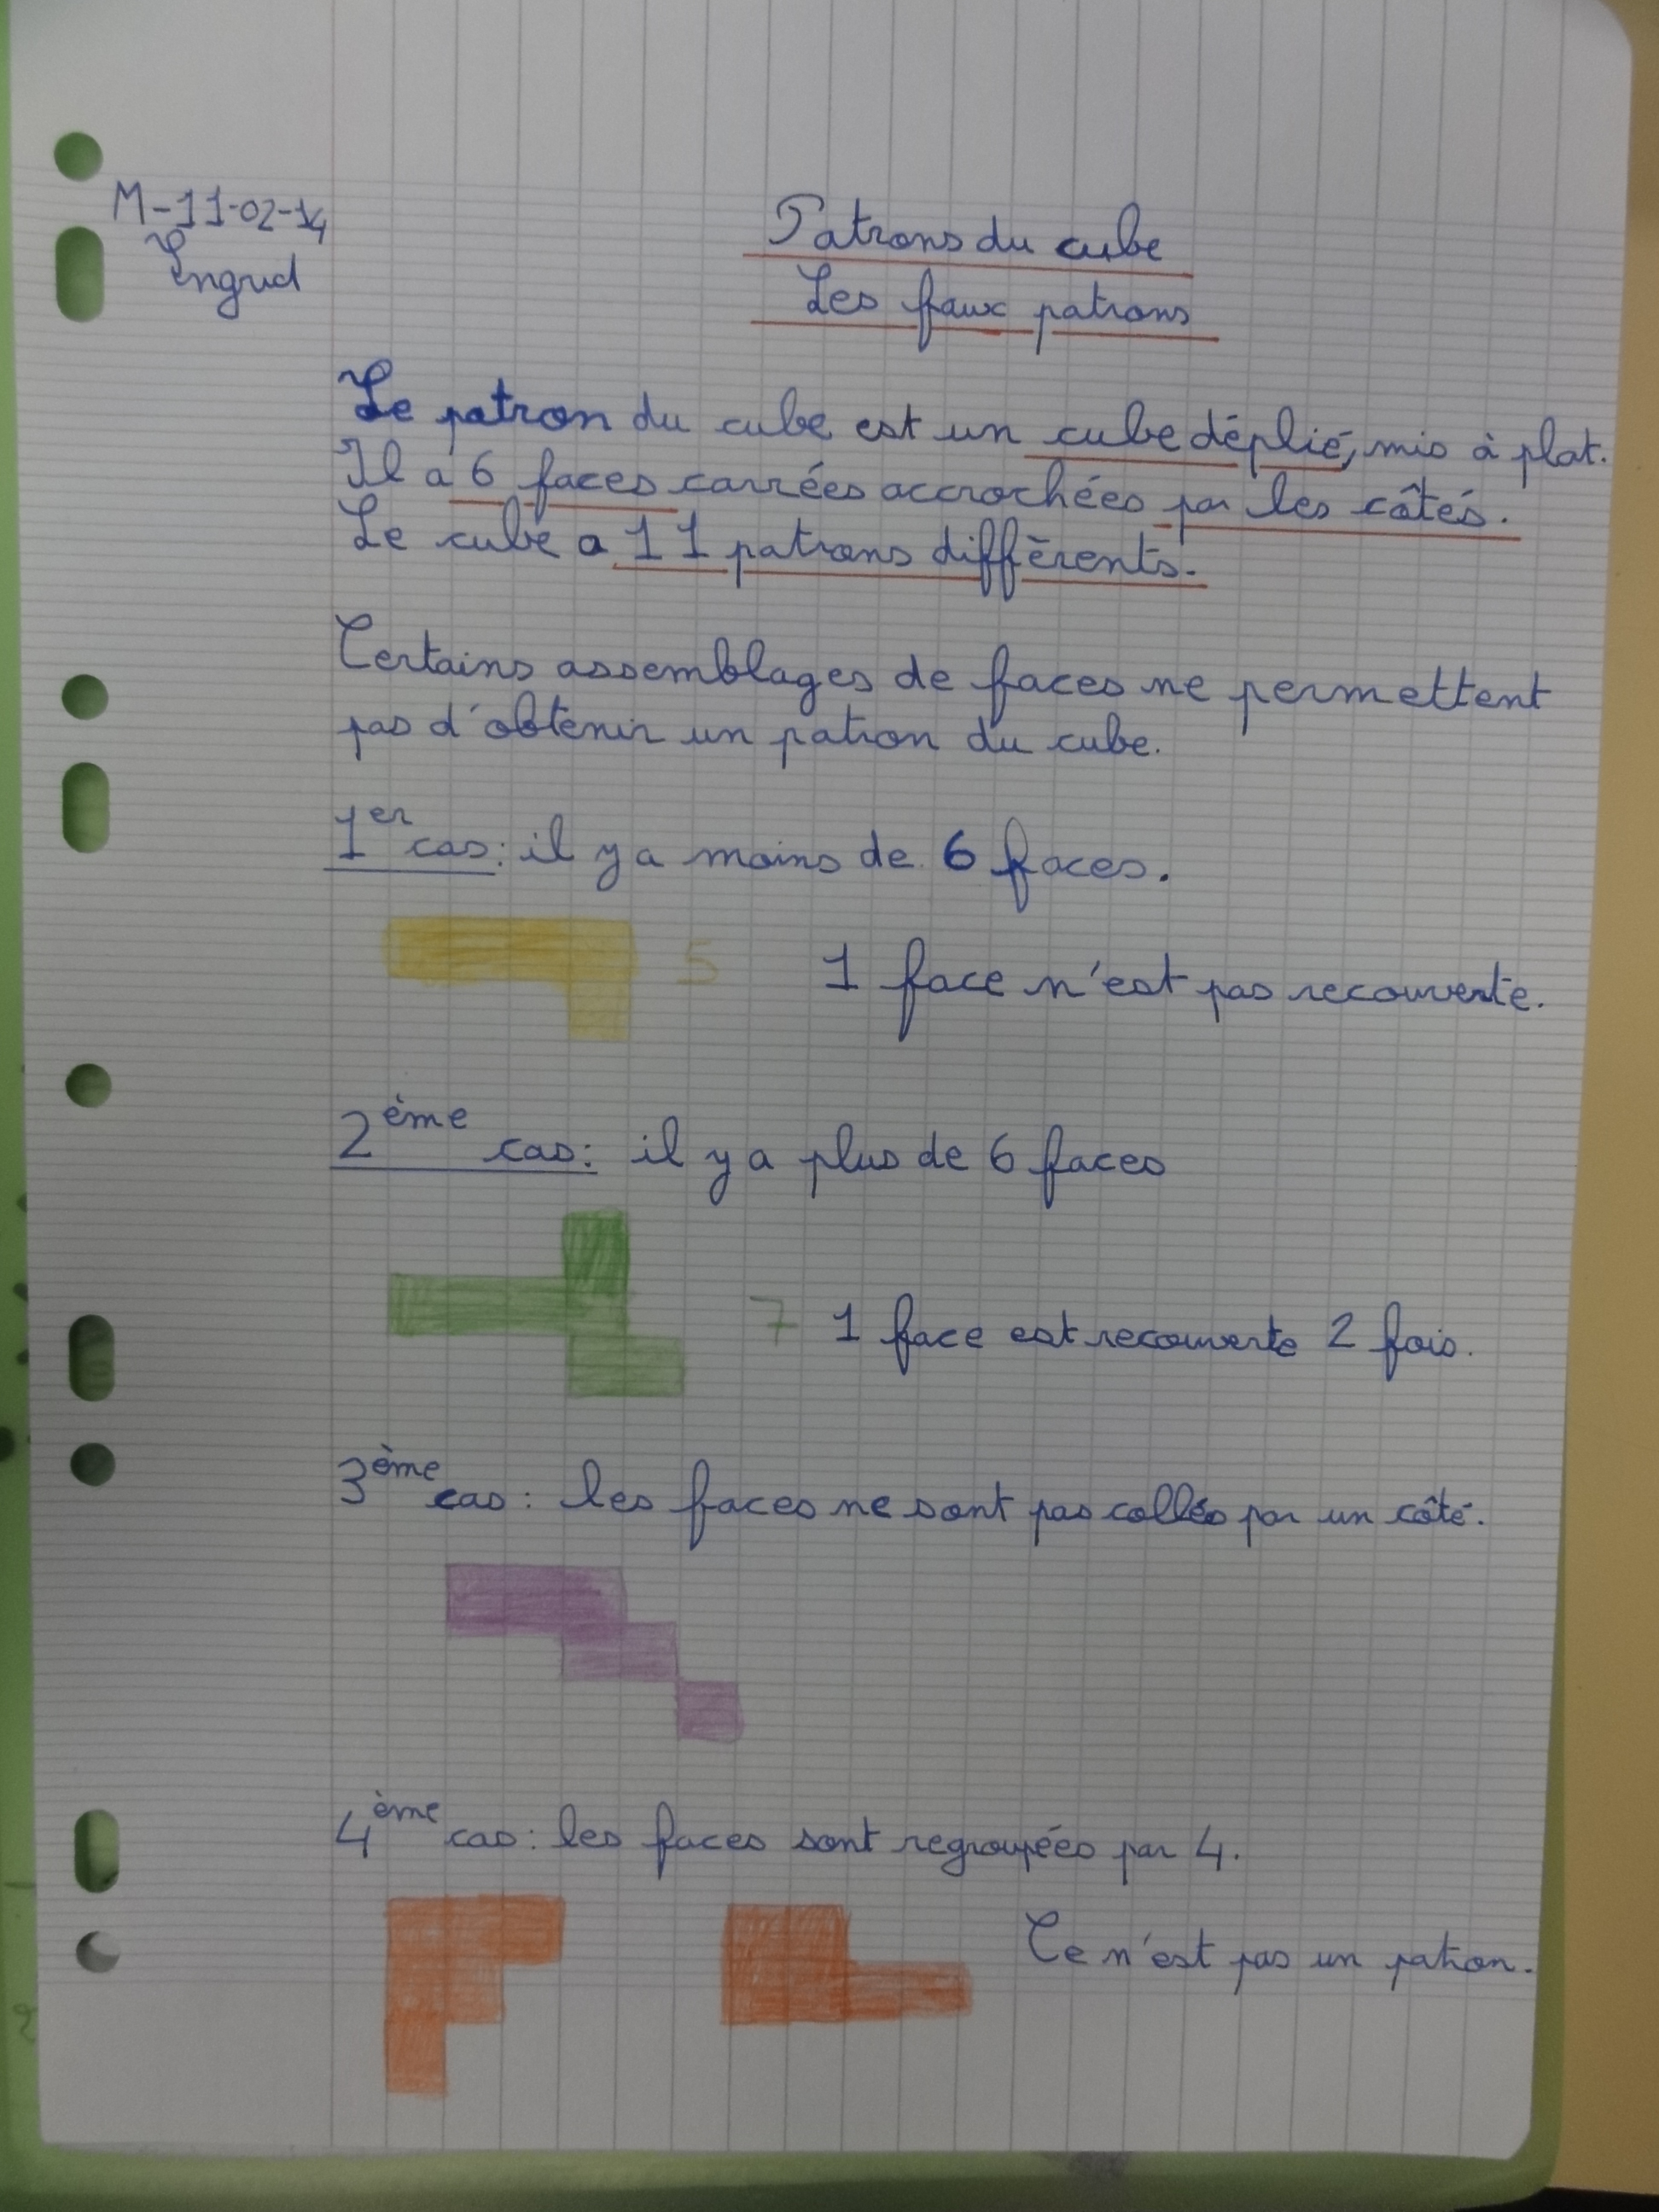 M-11-02-14
Ingrid
Patrons du cube
Les faux patrons
Le patron du cube est un cube déplié, mis à plat.
Il a 6 faces carrées accrochées par les côtés.
Le cube a 11 patrons différents.
Certains assemblages de faces ne permettent
pas d'obtenir un patron du cube.
1er cas: il y a moins de 6 faces.
5 1 face n'est pas recouverte.
2ème cas: il y a plus de 6 faces
7 1 face est recouverte 2 fois.
3ème cas: les faces ne sont pas collés par un côté.
4ème cas: les faces sont regroupées par 4.
Ce n'est pas un patron.